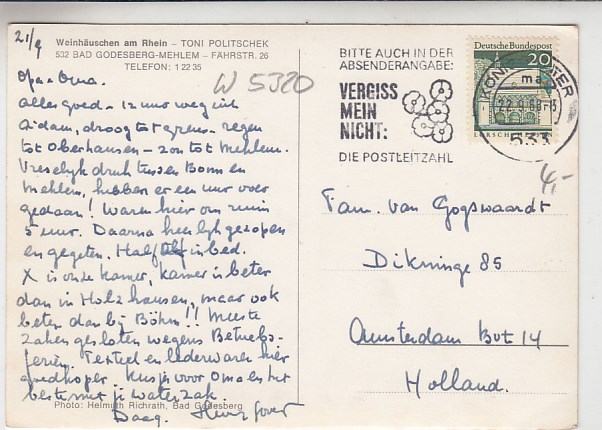 21/9
Weinhäuschen am Rhein – TONI POLITSCHEK
532 BAD GODESBERG-MEHLEM – FÄHRSTR. 26
TELEFON: 1 22 35
W 5320
Opa + Oma.
Alles goed – 12 uur weg uit
A'dam, droog tot grens – regen
tot Oberhausen – zon tot Mehlem.
Vreselyk druk tussen Bonn en
Mehlem, hebben er een uur over
gedaan! Waren hier om ruim
5 uur. Daarna heerlyk gezopen
en gegeten. Half in bed.
X is onze kamer, kamer is beter
dan in Holzhausen, maar ook
beter dan bij Böhm!! Meeste
zaken gesloten wegens Betriebs-
ferien. Textiel en lederwaren hier
goedkoper. Kusje voor Oma en het
beste met je waterzak.
Photo: Helmuth Richrath, Bad Godesberg
Daag.
BITTE AUCH IN DER
ABSENDERANGABE:
VERGISS
MEIN
NICHT:
DIE POSTLEITZAHL
Deutsche Bundespost
20
KÖNIGSWINTER
22.9.68-13
533
4,-
Fam. van Gogswaardt
Dikninge 85
Amsterdam But 14
Holland.